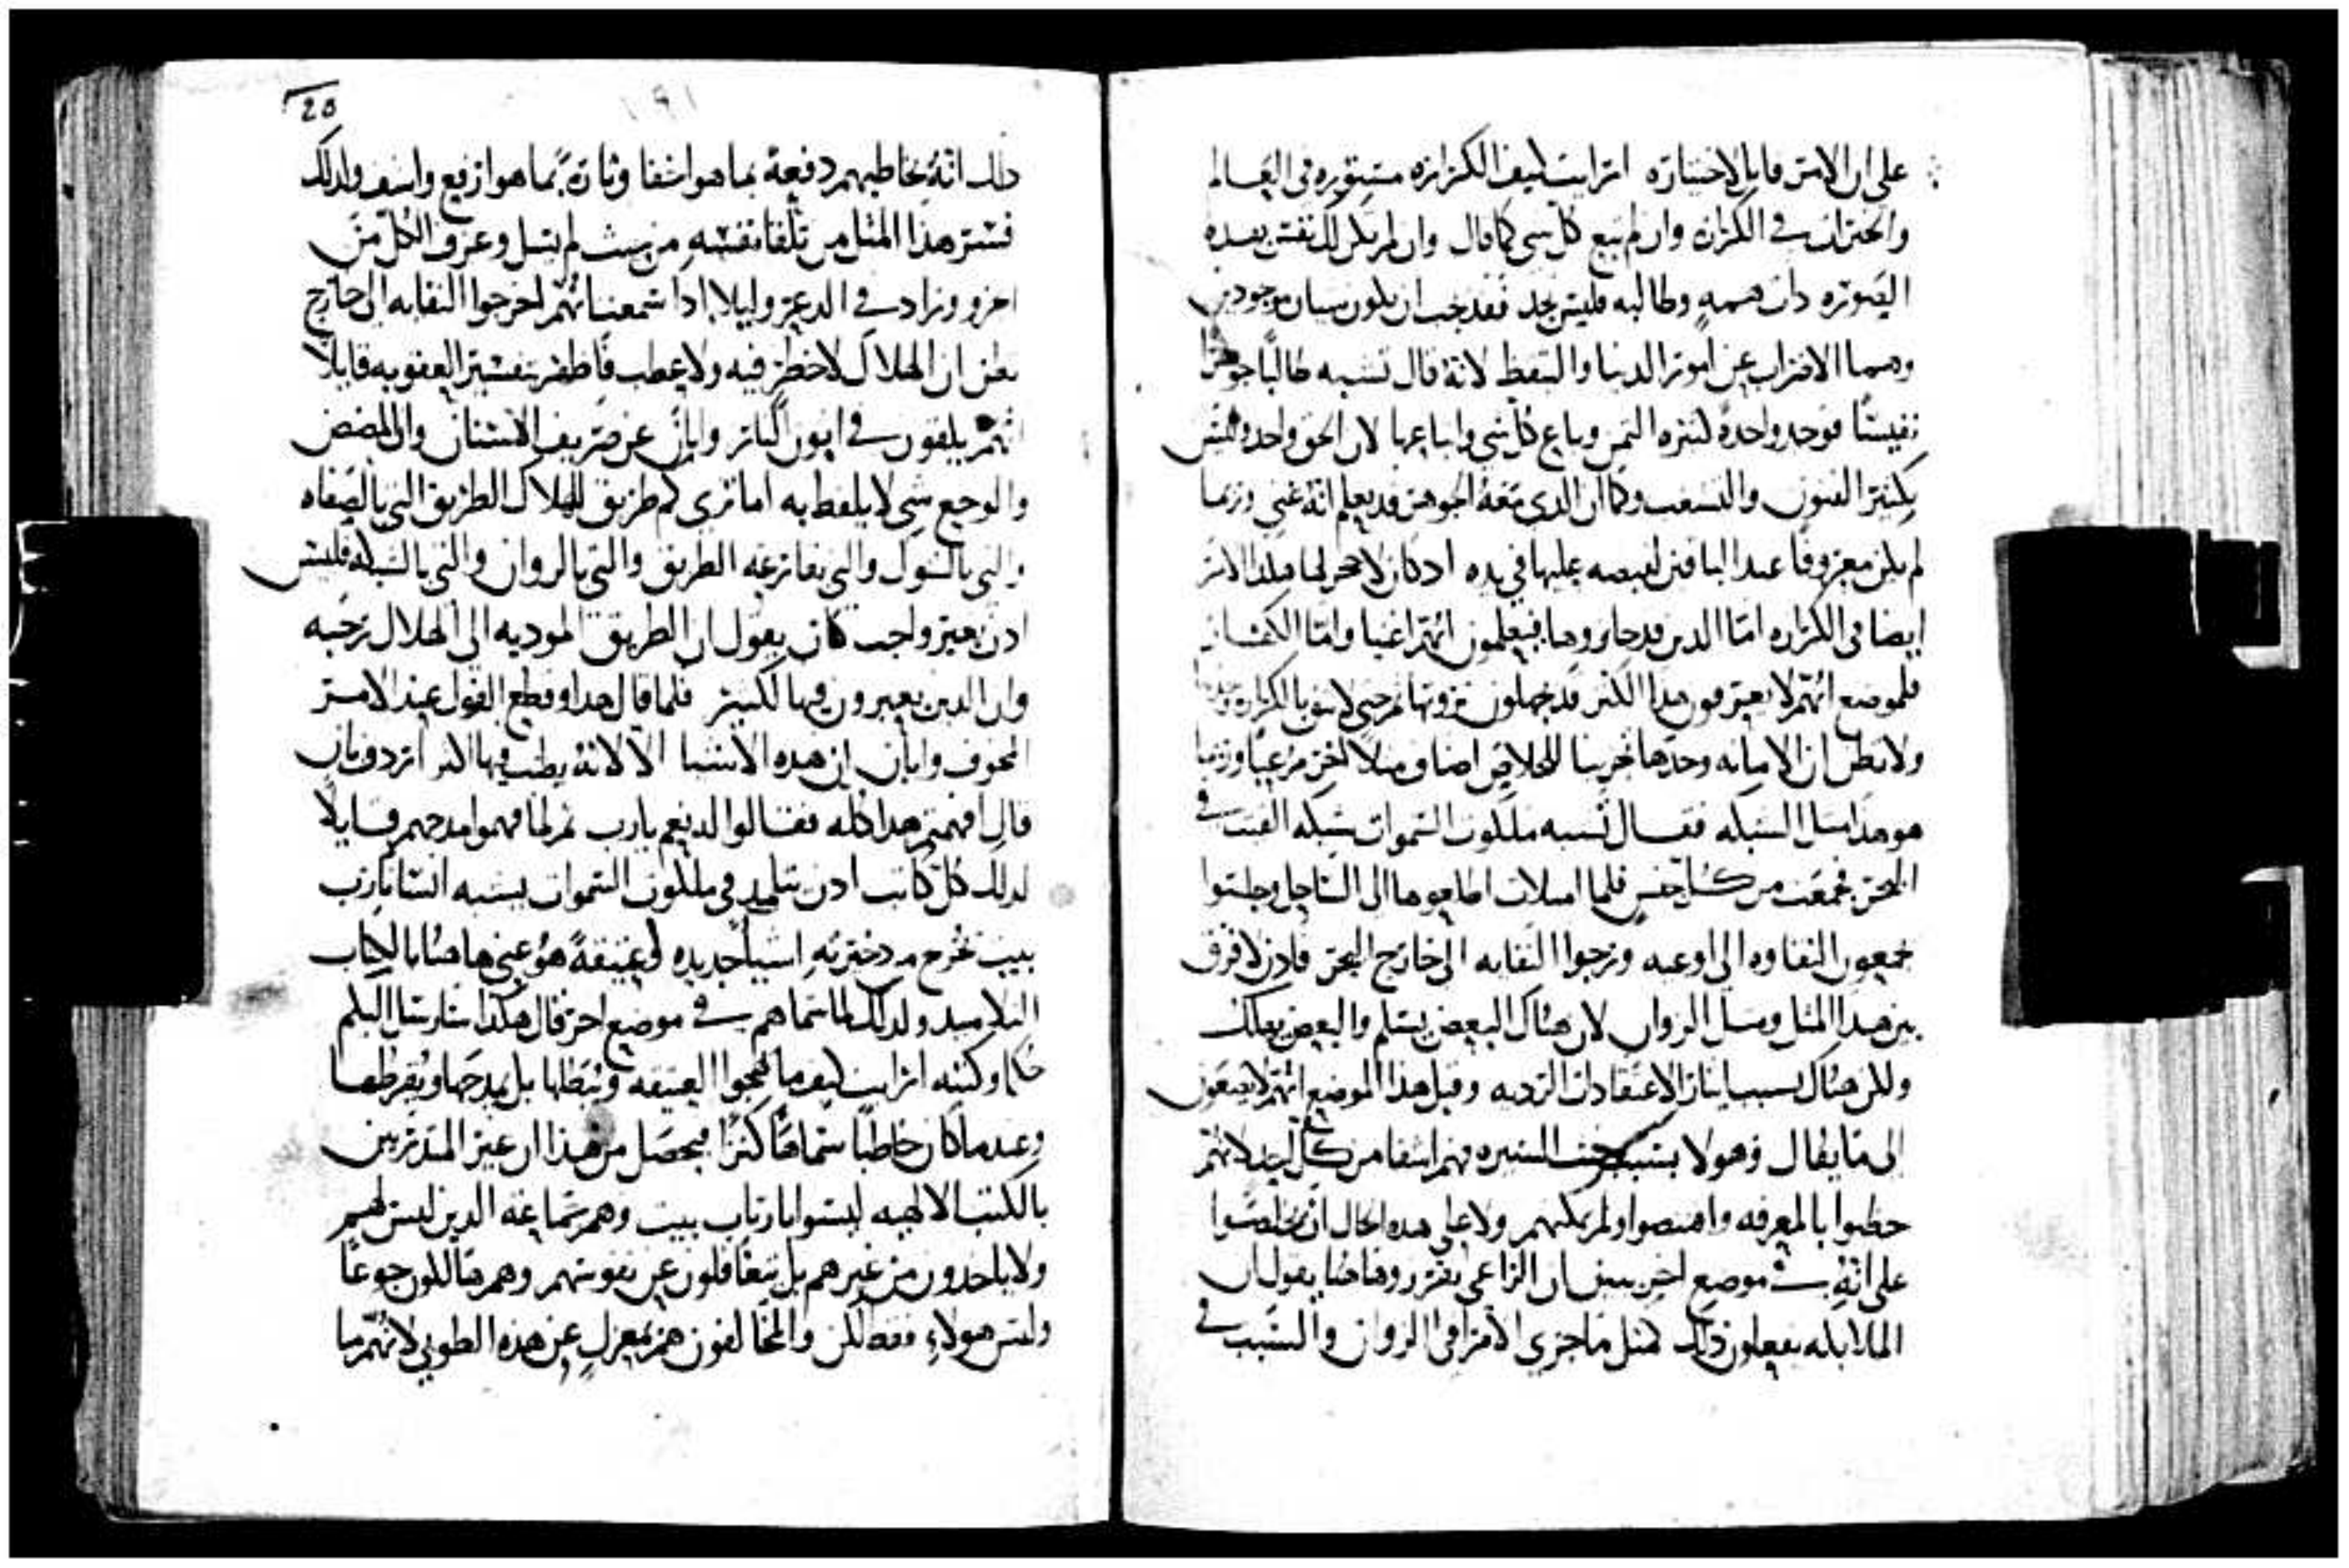 على ان الامر قابل لاختياره ارايت كيف الكرازه مستوره في العالم
والخيرات في الكرازه وان لم تبع كل شي كما قال وان لم يكن لك نفس بهذه
الصوره ذات همه وطالبه فليس تجد فقد يجب ان يكون سيان موجودين
وهما الاضراب عن امور الدنيا والتيقظ لانه قال تشبه طالبًا جوهرًا
نفيسًا فوجد واحدة كثيره الثمن وباع كل شي وابتاعها لان الحق واحد وليس
بكثير الفنون والتشعب وكما ان الذي معه الجوهر قد يعلم انه غني وربما
لم يكن معروفًا عند الباقين لقبضه عليها في يده اذ كان لا حجم لها فكذا الامر
ايضا في الكرازه امّا الذين قد حازوها فيعلمون انهم اغنيا وامّا الكفار
فلموضع انهم لا يعترفون بهذا الكنز قد يجهلون ثروتنا ثم حتى لا نثق بالكرازه وحدها
ولا نظن ان الامانه وحدها تجزينا للخلاص اضاف مثلا اخر مرعبًا وربما
هو هذا مثل الشبكه فقال تشبه ملكوت السموات شبكه القيت في
البحر فجمعت من كل جنس فلما امتلات اطلعوها الى الساحل وجلسوا
يجمعون النقاوه الى اوعيه ورموا النفايه الى خارج البحر فاذن لا فرق
بين هذا المثل ومثل الزوان لان هناك البعض يسلم والبعض يهلك
ولكن هناك بسبب ايثار الاعتقادات الرديه وقبل هذا الموضع انهم لا يصغون
الى ما يقال وهولا بسبب خبث السيره فهم اشقا من كل احد لانهم
حظيوا بالمعرفه واقتنصوا ولم يمكنهم ولا على هذه الحال ان يخلصوا
على انه في موضع اخر يبين ان الراعي يفرز وها هنا يقول ان
الملايكه يفعلون ذلك كمثل ما جرى الامر في الزوان والسبب في
20
ذلك انه يخاطبهم دفعة بما هو اشفا وثارةً بما هو ارفع واشف ولذلك
فسر هذا المثل من تلقا نفسه من حيث لم يسل وعرف الكل من
اخره وزاد في الذعر وليلا اذا سمعنا انهم اخرجوا النفايه الى خارج
نظن ان الهلاك لا خطر فيه ولا عطب فاظهر بتفسير العقوبه قايلا
انهم يلقون في اتون النار وابان عن صريف الاسنان وان المضض
والوجع شي لا يلفظ به اما ترى كم طريق للهلاك الطريق التي بالصفاه
والتي بالشوك والتي بقارعه الطريق والتي بالزوان والتي بالشبكه فليس
اذن بغير واجب كان يقول ان الطريق الموديه الى الهلاك رحبه
وان الذين يعبرون فيها لكثير فلما قال هذا وقطع القول عند الامر
المخوف وابان ان هذه الاشيا الا لانه يطنب فيها اكثر اردف بان
قال افهمتم هذا كله فقالوا له نعم يارب ثم لما فهموا مدحهم قايلا
لذلك كل كاتب اذن تتلمذ في ملكوت السموات يشبه انسانا رب
بيت يخرج من ذخيرته اشيا جديده وعتيقةً هو عنى ها هنا بالكتاب
التلاميذ ولذلك لما سماهم في موضع اخر قال هكذا سارسل اليكم
حكما وكتبه ارايت كيف ما يحجوا العتيقه وثبطلها بل يمدحها ويقرظها
وعندما كان خاطبًا سماها كنزًا فيحصل من هذا ان غير المتدربين
بالكتب الالهيه ليسوا بارباب بيت وهم جماعه الذين ليس لهم
ولا ياخذون من غيرهم بل يتغافلون عن نفوسهم وهم هالكون جوعًا
وليس هولاء فقط لكن والمخالفون هم بمعزلٍ عن هذه الطوبى لانهم ما